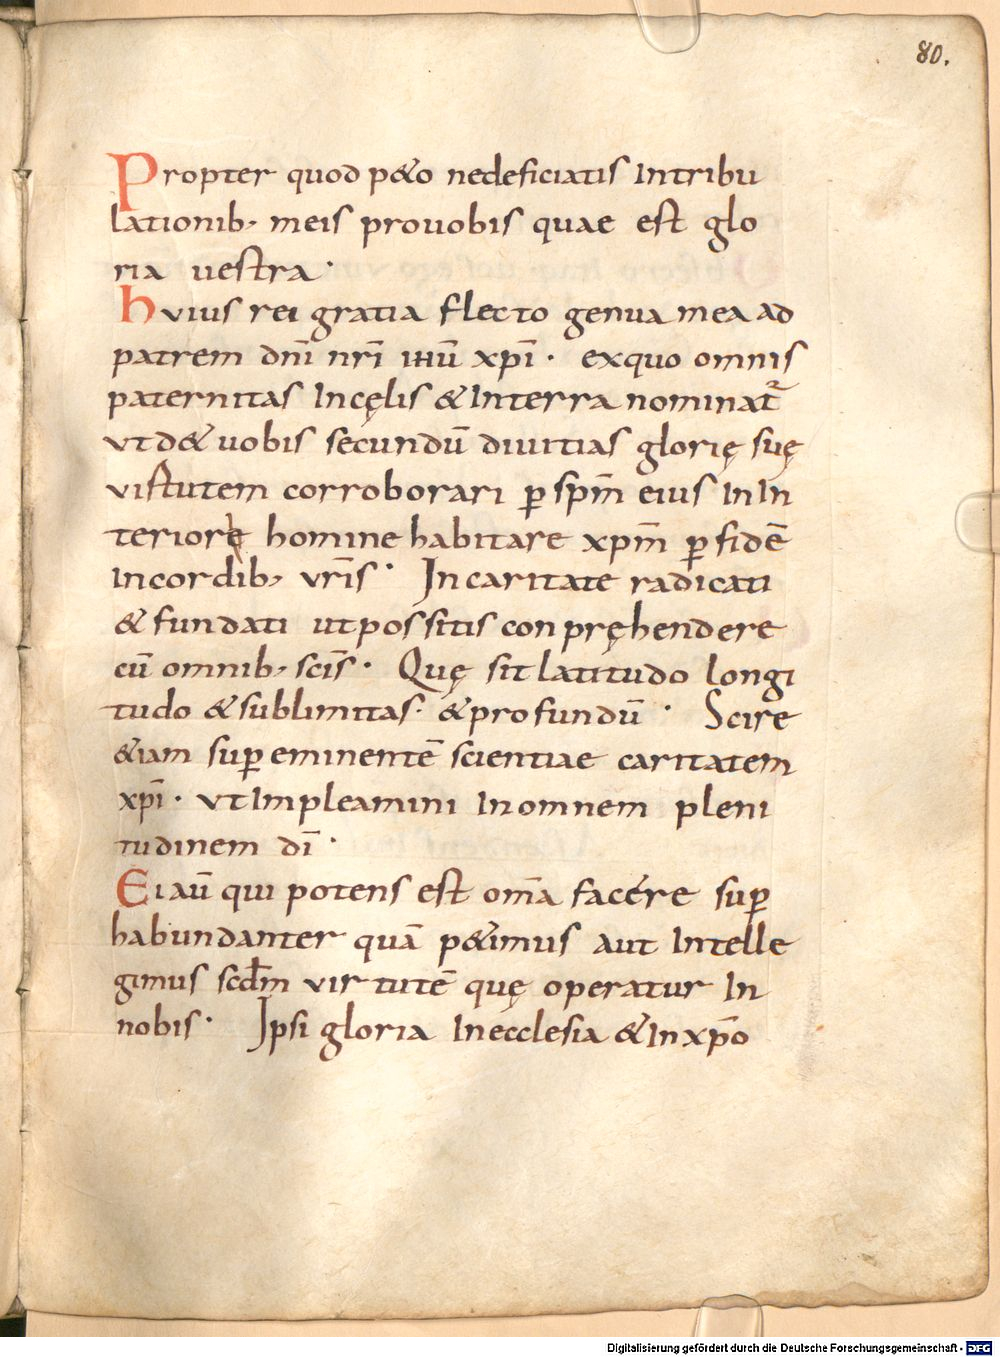 80.
Propter quod p&o nedeficiatis Intribu
lationib; meis prouobis quae est glo
ria uestra·
huius rei gratia flecto genua mea ad
patrem dnī nrī ihū xpī · exquo omnis
paternitas Incęlis & Interra nominat᷑
vt d& uobis secundū diuitias glorię suę
virtutem corroborari ꝑ spm̄ eius InIn
teriore homine habitare xpm̄ ꝑ fidē
Incordib; vrīs · Incaritate radicati
& fundati ut possitis conpręhendere
cū omnib; scīs · Quę sit latitudo longi
tudo & sublimitas· & profundū · Scire
&iam suꝑ eminentē scientiae caritatem
xpī · vt Impleamini Inomnem pleni
tudinem dī ·
Ei aū qui potens est omīa facere suꝑ
habundanter quā p&imus aut Intelle
gimus scdm̄ virtutē quę operatur In
nobis · Ipsi gloria Inecclesia & Inxp̄o
Digitalisierung gefördert durch die Deutsche Forschungsgemeinschaft - DFG